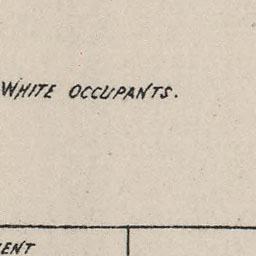 WHITE OCCUPANTS.